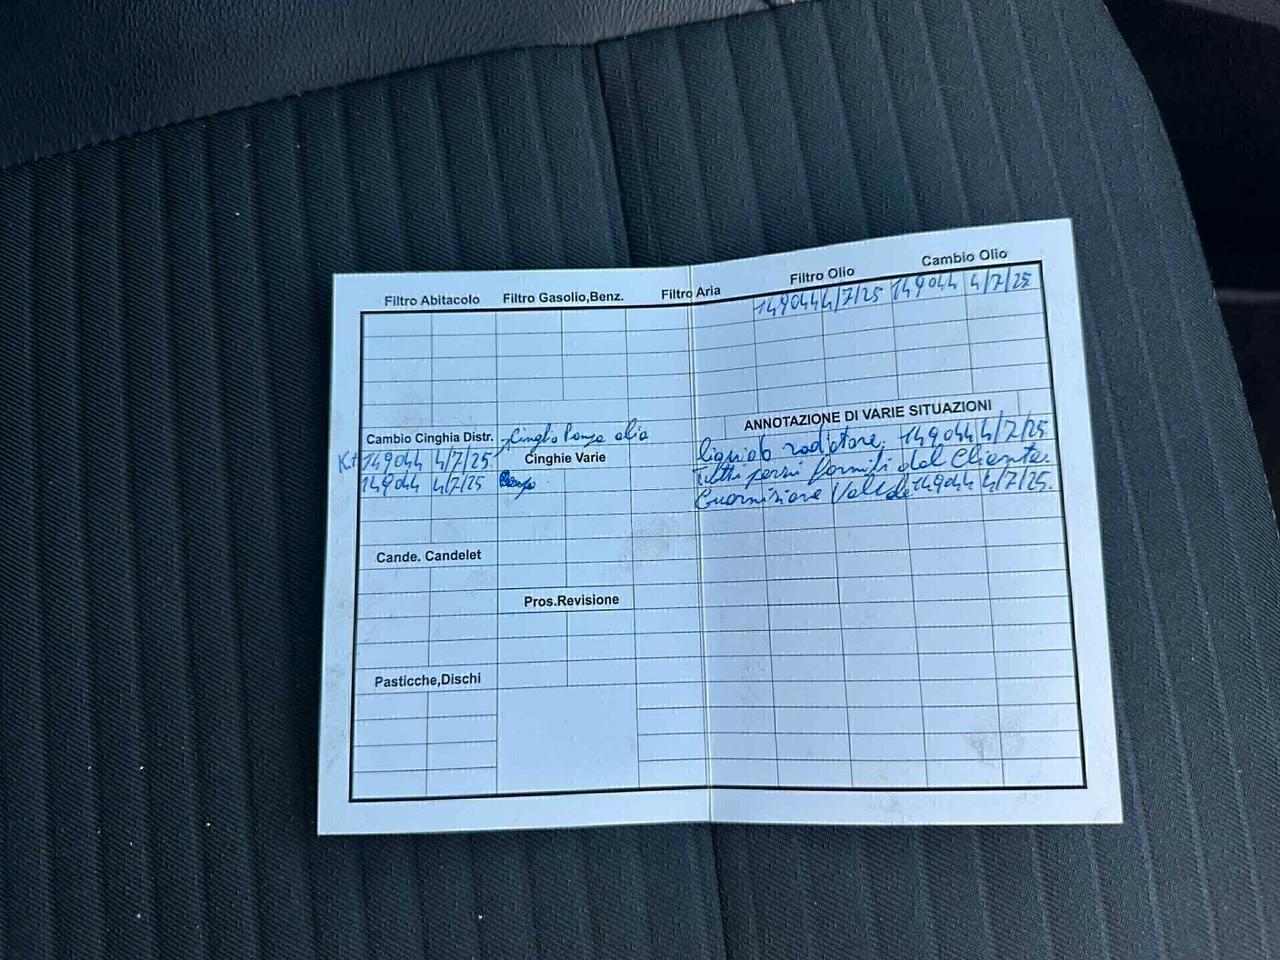 Filtro Abitacolo Filtro Gasolio,Benz. Filtro Aria Filtro Olio Cambio Olio
149044 4/7/25 149044 4/7/25
ANNOTAZIONE DI VARIE SITUAZIONI
Cambio Cinghia Distr. Cinghia Pompa olio
liquido radiatore 149044 4/7/25
Kit 149044 4/7/25 Cinghie Varie
Tutti pezzi forniti dal Cliente.
149044 4/7/25
Guarnizione 149044 4/7/25.
Cande. Candelet
Pros.Revisione
Pasticche,Dischi